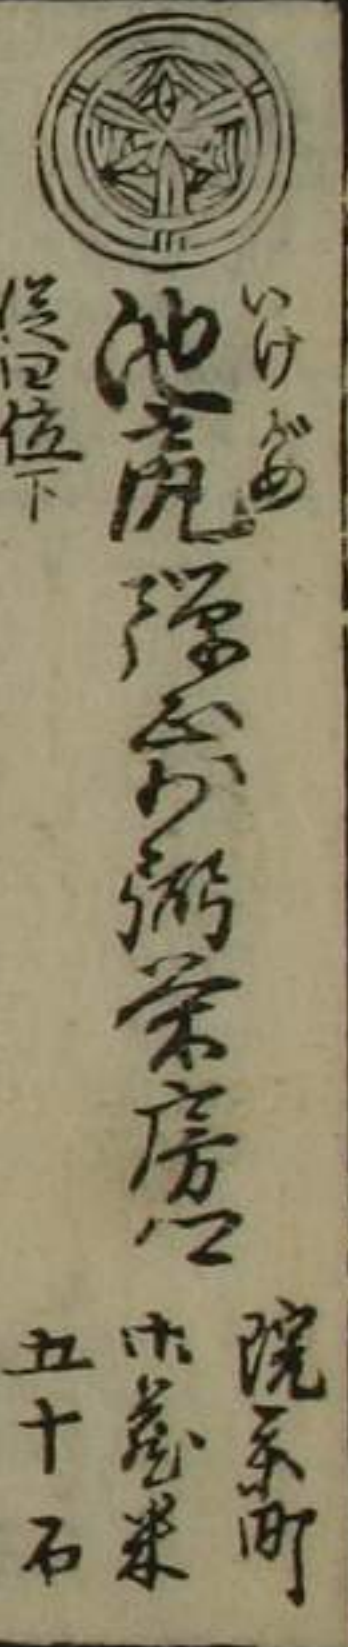 いけがめ
池亀
弾正少弼栄房
従四位下
院参町
御蔵米
五十石